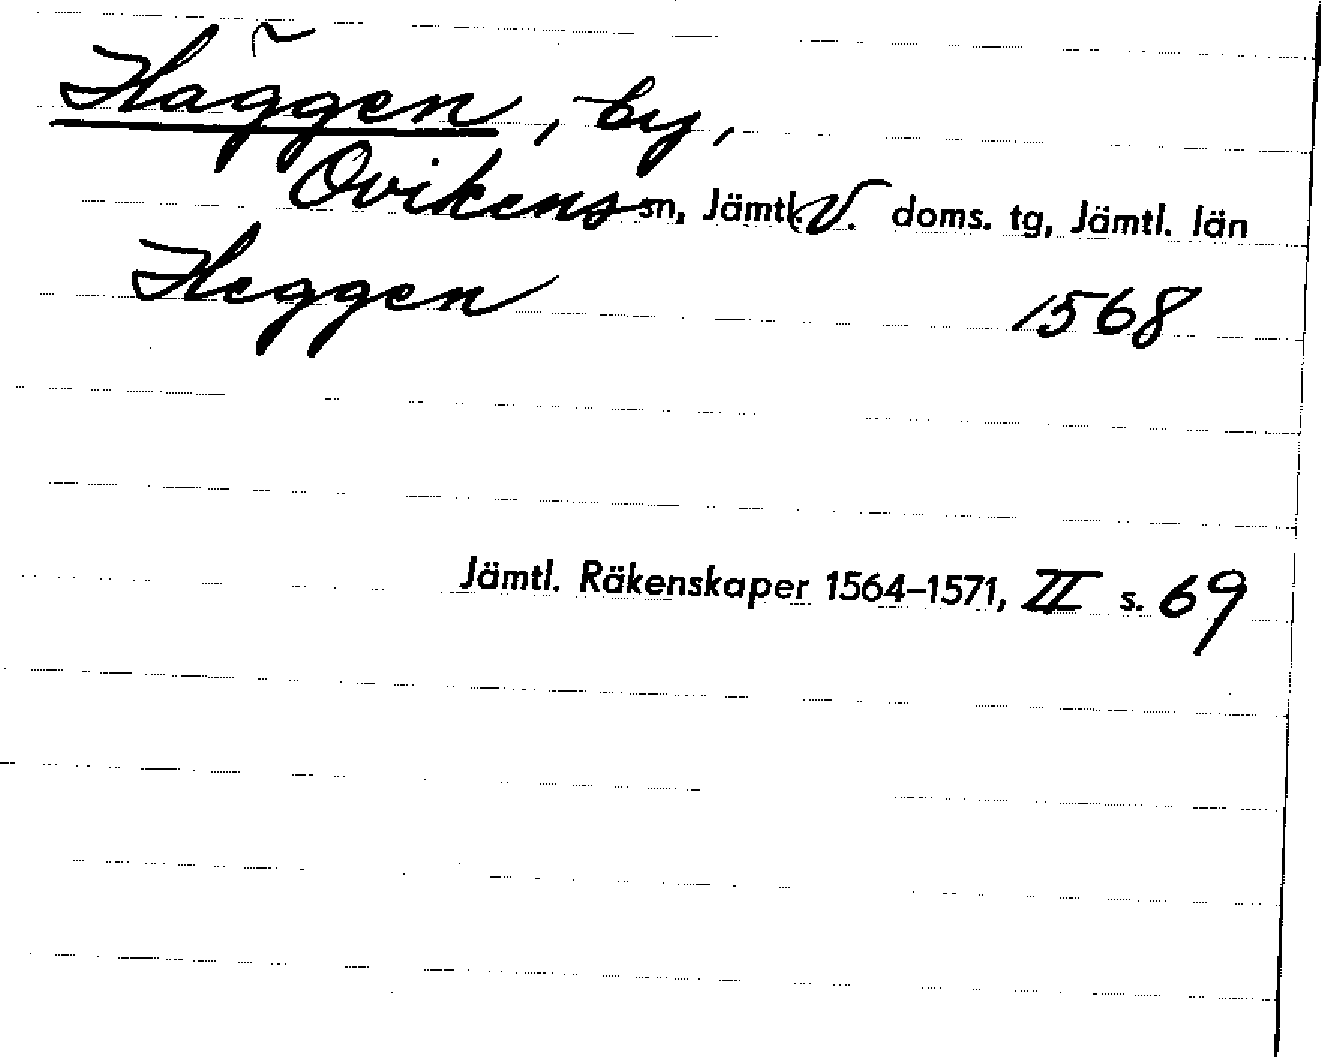 Häggen, by,
Ovikens sn, Jämtl. V. doms. tg, Jämtl. län
Heggen 1568
Jämtl. Räkenskaper 1564–1571, II s. 69